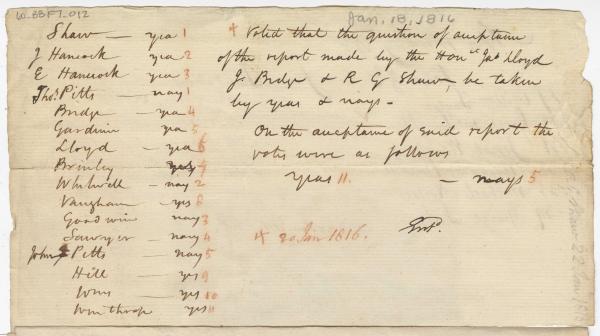 w_BBF7_012
Jan. 18, 1816
Shaw — yea 1
J Hancock — yea 2
E Hancock — yea 3
Thos. Pitts — nay 1
Bridge — yea 4
Gardiner — yea 5
Lloyd — yea 6
Brinley — yea 7
Whitwell — nay 2
Vaughan — yes 8
Goodwin — nay 3
Sawyer — nay 4
John Pitts — nay 5
Hill — yes 9
Wms — yes 10
Winthrop yes 11
+ Voted that the question of acceptance
of the report made by the Honl Jas Lloyd
J. Bridge & R G Shaw, be taken
by yeas & nays —
On the acceptance of said report the
votes were as follows
Yeas 11. — nays 5
+ 20 Jan 1816.